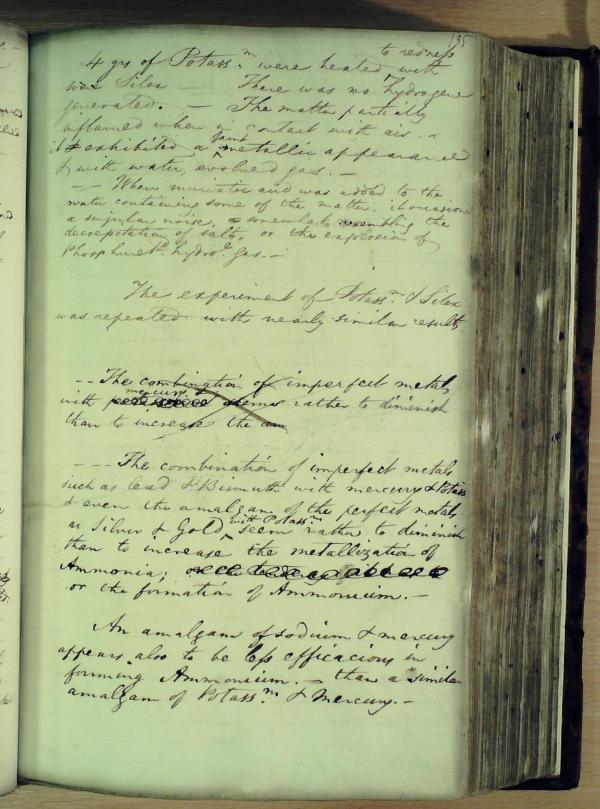 195
to redness
4 grs of Potassm. were heated with
Silex — There was no hydrogene
generated. — The matter partially
inflamed when in contact with air. &
it exhibited a metallic appearance
& with water, evolved gas. —
— — When muriatic acid was added to the
water containing some of the matter, it occasioned
a singular noise, somewhat resembling the
decrepitation of salts, or the explosion of
Phosphuretd. hydroe. gas. —
The experiment of Potassm. & Silex
was repeated with nearly similar results.
— — The combination of imperfect metals
mercury &
with seems rather to diminish
than to increase the am
— — — The combination of imperfect metals
such as lead & Bismuth with mercury & Potassm
& even the amalgam of the perfect metals
as Silver & Gold, with Potassm. seem rather to diminish
than to increase the metallization of
Ammonia;
or the formation of Ammonium. —
An amalgam of sodium & mercury
appears also to be less efficacious in
forming Ammonium. — than a similar
amalgam of Potassm. & Mercury. —